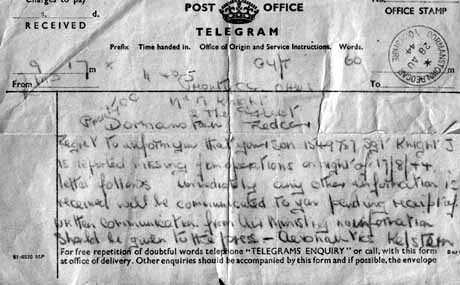 Charges to pay
s. d.
RECEIVED
POST OFFICE
TELEGRAM
OFFICE STAMP
Prefix Time handed in. Office of Origin and Service Instructions. Words.
60
From
To
DORMANSTOWN REDCAR
28 AU
44
Dormanstown Redcar
Regret to inform you that your son Sgt Knight J
is reported missing from operations on night of 17/8/44
letter follows immediately any other information is
received will be communicated to you pending receipt of
written communication from Air Ministry no information
should be given to the press - Kelstern
For free repetition of doubtful words telephone "TELEGRAMS ENQUIRY" or call, with this form
at office of delivery. Other enquiries should be accompanied by this form and if possible, the envelope